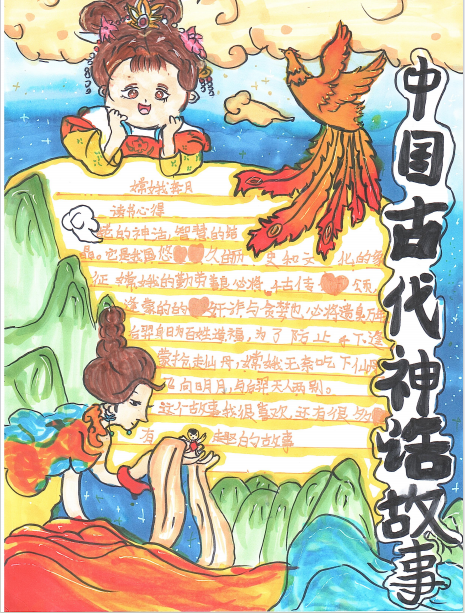 中国古代神话故事
嫦娥奔月
读书心得
的神话,智慧的结
晶。它是我国悠久的历史和文化的象
征 嫦娥的勤劳 必将 古传 颂
逢蒙的的 奸诈与贪婪也必将遗臭万年
后羿自日为百姓造福,为了防止 下逢
蒙抢走仙丹,嫦娥无奈吃下仙丹
向明月,与后羿天人两别。
这个故事我很喜欢,还有很多
有 趣的故事